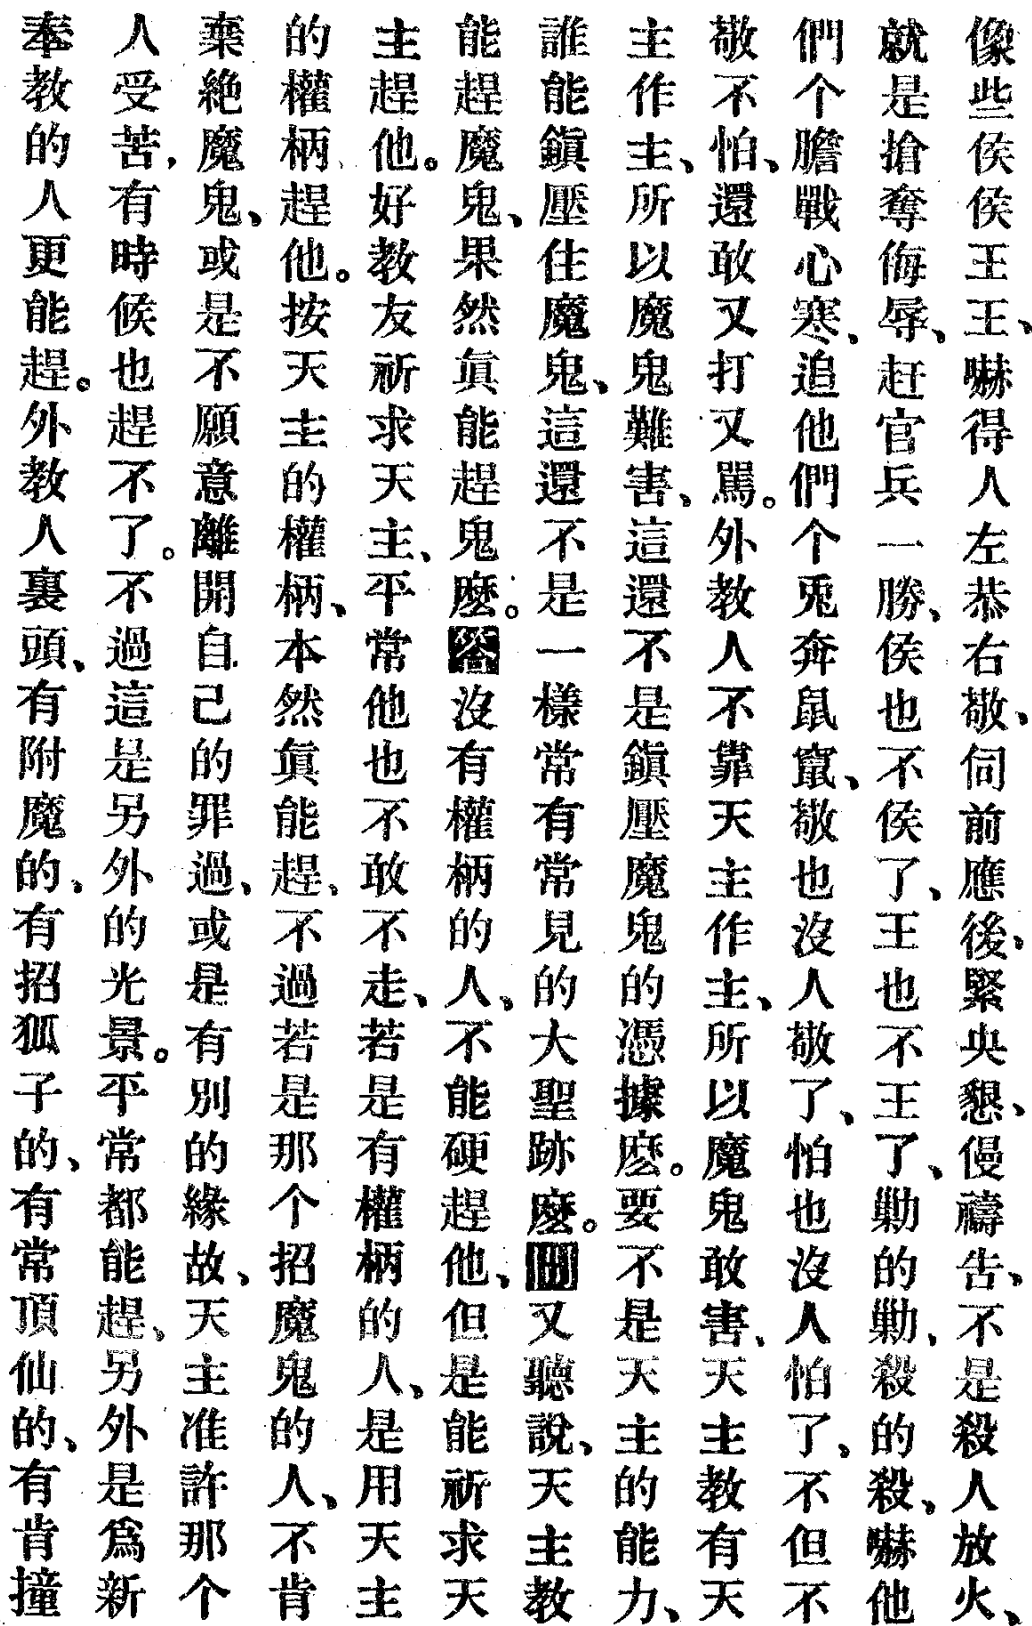 像些侯侯王王、嚇得人左恭右敬、伺前應後、緊央懇、慢禱告、不是殺人放火、
就是搶奪侮辱、赶官兵一勝、侯也不侯了、王也不王了、勦的勦、殺的殺、嚇他
們个膽戰心寒、追他們个兎奔鼠竄、敬也沒人敬了、怕也沒人怕了、不但不
敬不怕、還敢又打又罵。外教人不靠天主作主、所以魔鬼敢害、天主教有天
主作主、所以魔鬼難害、這還不是鎭壓魔鬼的憑據麽。要不是天主的能力、
誰能鎭壓住魔鬼、這還不是一樣常有常見的大聖跡麽。問又聽說、天主教
能趕魔鬼、果然眞能趕鬼麽。答沒有權柄的人、不能硬趕他、但是能祈求天
主趕他。好教友祈求天主、平常他也不敢不走、若是有權柄的人、是用天主
的權柄、趕他。按天主的權柄、本然眞能趕、不過若是那个招魔鬼的人、不肯
棄絶魔鬼、或是不願意離開自己的罪過、或是有別的緣故、天主准許那个
人受苦、有時候也趕不了。不過這是另外的光景。平常都能趕、另外是爲新
奉教的人更能趕。外教人裏頭、有附魔的、有招狐子的、有常頂仙的、有肯撞